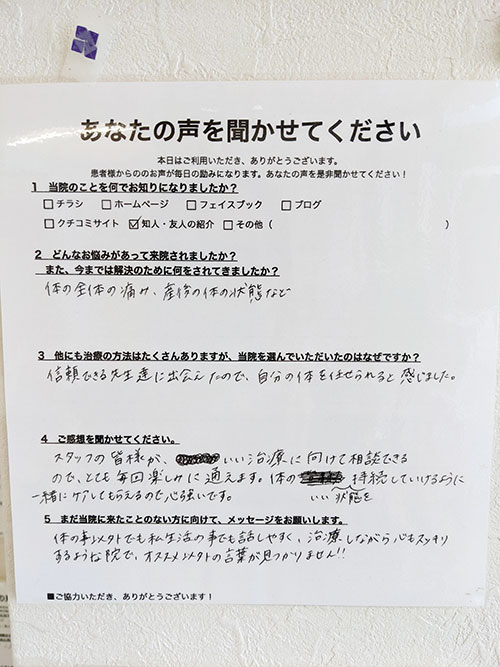 あなたの声を聞かせてください
本日はご利用いただき、ありがとうございます。
患者様からのの声が毎日の励みになります。あなたの声を是非聞かせてください！
1 当院のことを何でお知りになりましたか？
□チラシ □ホームページ □フェイスブック □ブログ
□クチコミサイト ☑知人・友人の紹介 □その他（ ）
2 どんなお悩みがあって来院されましたか？
また、今までは解決のために何をされてきましたか？
体の全体の痛み、産後の体の状態など
3 他にも治療の方法はたくさんありますが、当院を選んでいただいたのはなぜですか？
信頼できる先生達に出会えたので、自分の体を任せられると感じました。
4 ご感想を聞かせてください。
スタッフの皆様が、いい治療に向けて相談できる
ので、とても毎回楽しみに通えます。体の 持続していけるように
いい状態を
一緒にケアしてもらえるので心強いです。
5 まだ当院に来たことのない方に向けて、メッセージをお願いします。
体の事以外でも私生活の事でも話しやすく、治療しながら心もスッキリ
するような院で、オススメ以外の言葉が見つかりません!!
■ご協力いただき、ありがとうございます！